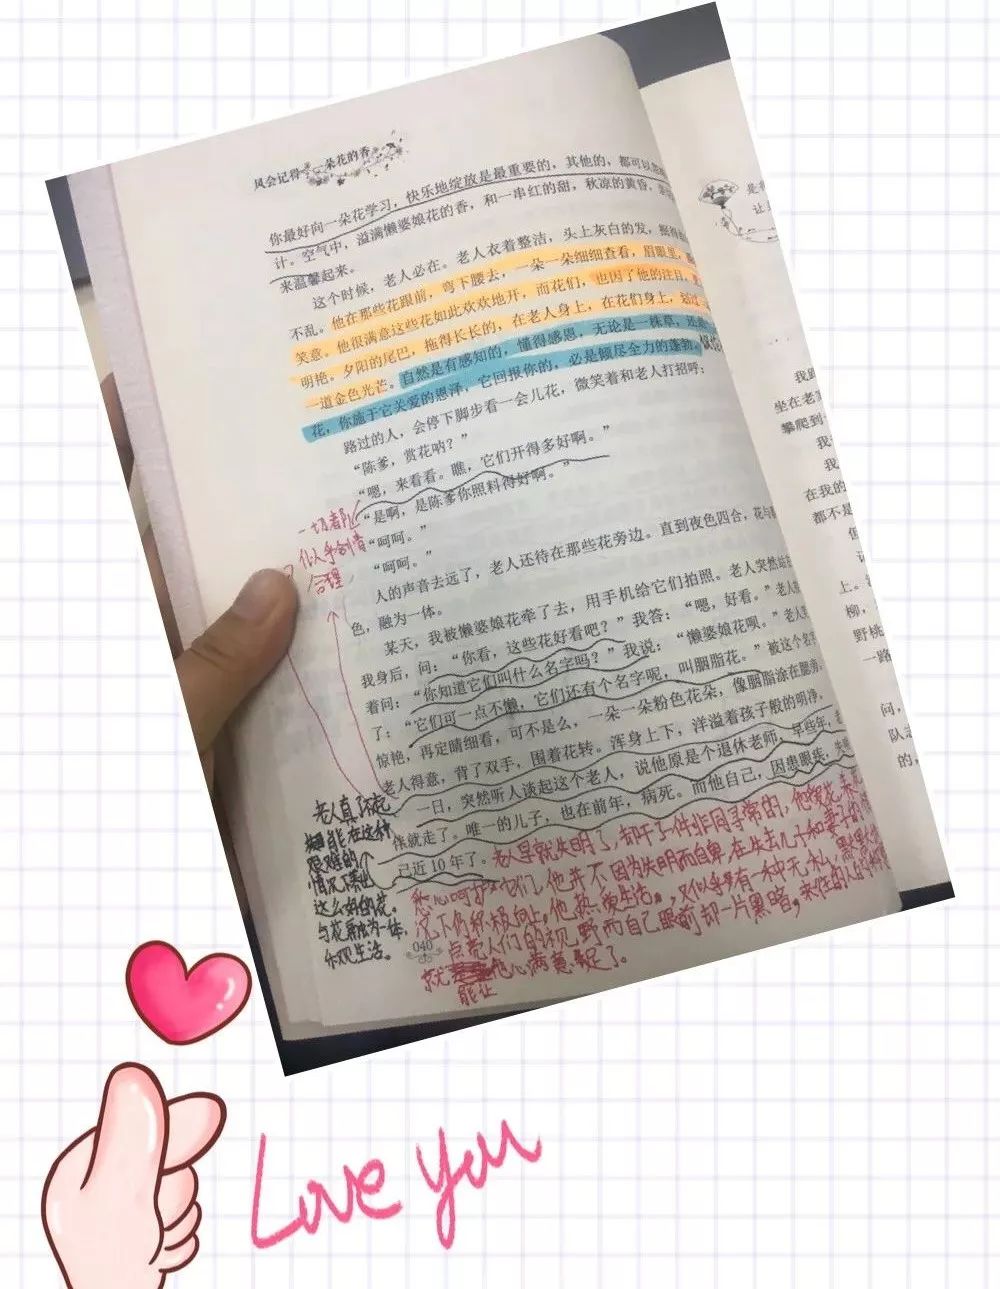 风会记得一朵花的香
你最好向一朵花学习，快乐地绽放是最重要的，其他的，都可以忽
计。空气中，溢满懒婆娘花的香，和一串红的甜，秋凉的黄昏，
来温馨起来。
这个时候，老人必在。老人衣着整洁，头上灰白的发，
不乱。他在那些花跟前，弯下腰去，一朵一朵细细查看，眉眼里，
笑意。他很满意这些花如此欢欢地开，而花们，也因了他的注目，
明艳。夕阳的尾巴，拖得长长的，在老人身上，在花们身上，
一道金色光芒。自然是有感知的，懂得感恩，无论是一株草，还是
花，你施于它关爱的恩泽，它回报你的，必是倾尽全力的蓬勃。
路过的人，会停下脚步看一会儿花，微笑着和老人打招呼：
“陈爹，赏花呐？”
“嗯，来看看。瞧，它们开得多好啊。”
“是啊，是陈爹你照料得好啊。”
“呵呵。”
“呵呵。”
人的声音去远了，老人还待在那些花旁边。直到夜色四合，花与
色，融为一体。
某天，我被懒婆娘花牵了去，用手机给它们拍照。老人突然站
我身后，问：“你看，这些花好看吧？”我答：“嗯，好看。”老人
着问：“你知道它们叫什么名字吗？”我说：“懒婆娘花呗。”老人
了：“它们可一点不懒，它们还有个名字呢，叫胭脂花。”被这个名
惊艳，再定睛细看，可不是么，一朵一朵粉色花朵，像胭脂涂在腮旁。
老人得意，背了双手，围着花转。浑身上下，洋溢着孩子般的明净。
一日，突然听人谈起这个老人，说他原是个退休老师，早些年，
伴就走了。唯一的儿子，也在前年，病死。而他自己，因患眼疾，失明
已近10年了。
040
一切都
似乎合情
合理
老人真了不起
能在这种
艰难的
情况下养出
这么好的花。
与花融为一体，
乐观生活。
老人早就失明了，却干了件非同寻常的，他种花，
悉心呵护它们，他并不因为失明而自卑，在失去儿子和妻子的
况下仍积极向上。他热爱生活。，又似乎有一种无私，
点亮人们的视野而自己眼前却一片黑暗，来往的人的
就
能让
他心满意足了。
是
让
我
坐在老
攀爬到
我
我
在我的
都不是
但
上。
柳，
野桃
一路
问，
队
的，
Love you